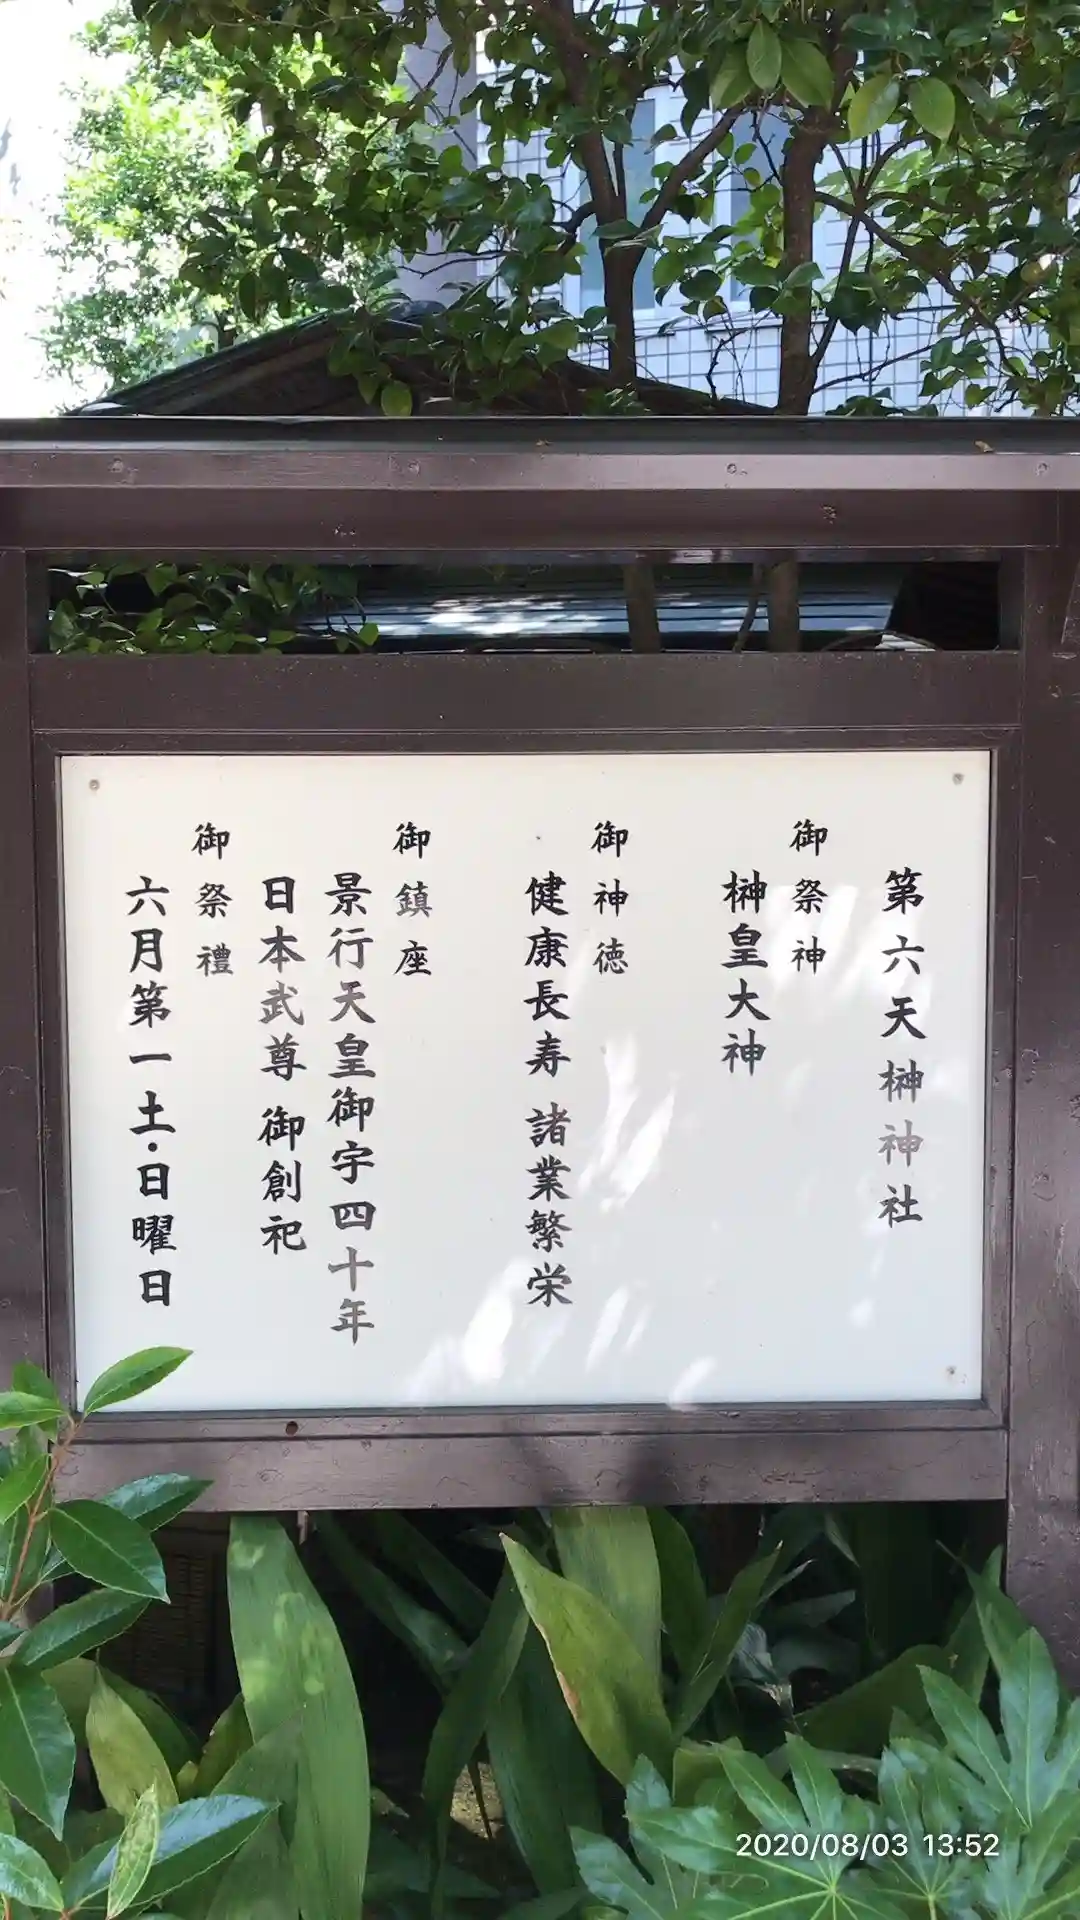 第六天榊神社
御祭神
榊皇大神
御神徳
健康長寿 諸業繁栄
御鎮座
景行天皇御宇四十年
日本武尊 御創祀
御祭禮
六月第一土・日曜日
2020/08/03 13:52